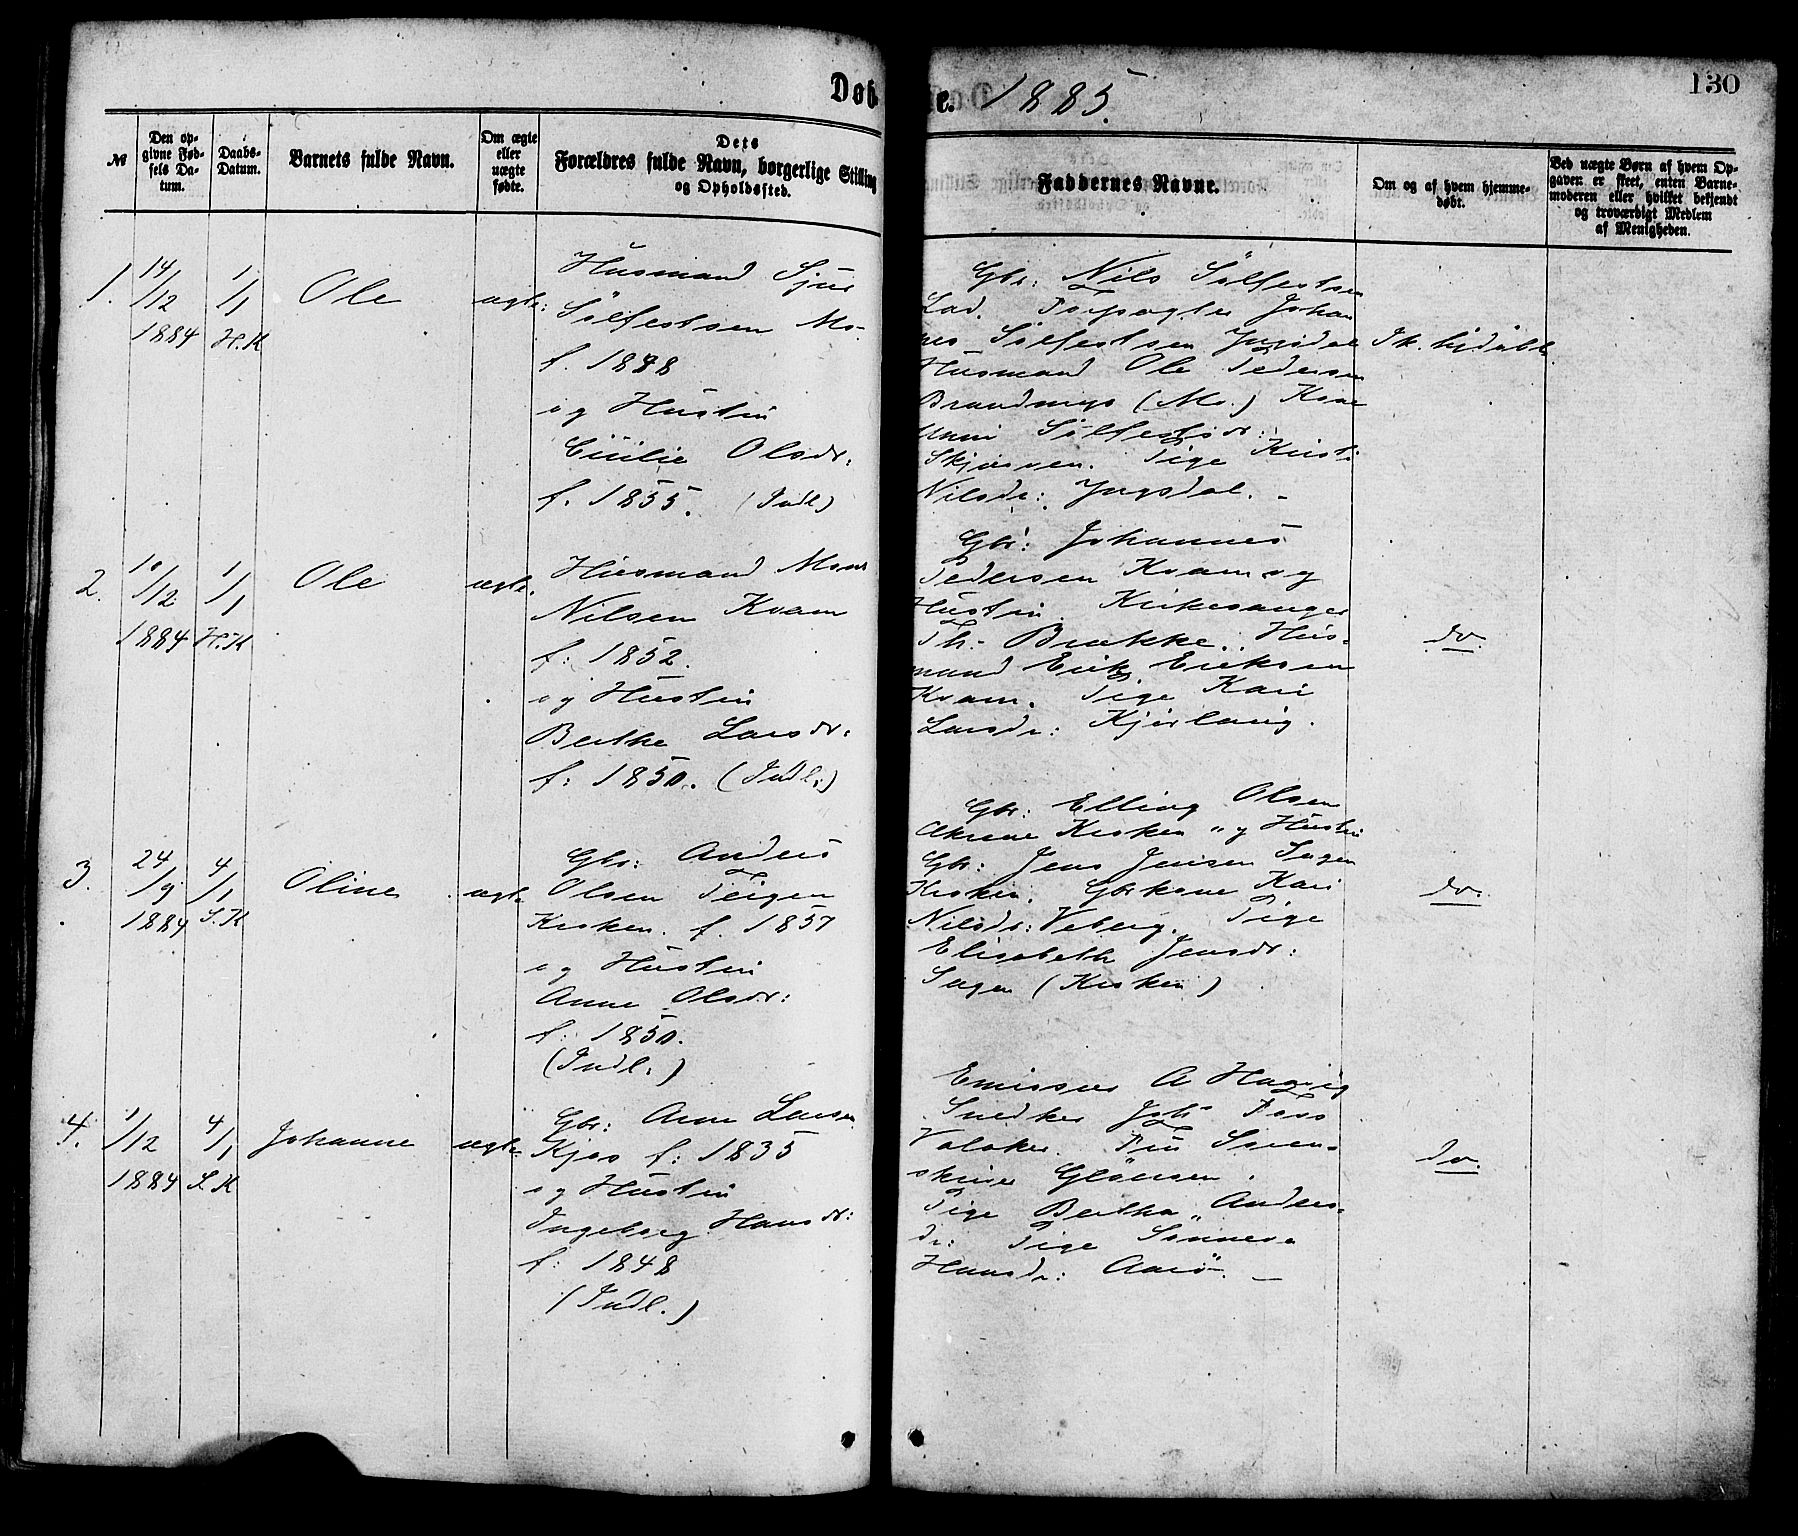 Døb
e. 1885.
130
№
Den op-
givne Fød-
sels Da-
tum.
Daabs-
Datum.
Barnets fulde Navn.
Om ægte
eller
uægte
fødte.
Dets
Forældres fulde Navn, borgerlige Stilling
og Opholdssted.
Faddernes Navne.
Om og af hvem hjemme-
døbt.
Ved uægte Børn af hvem Op-
gaven er skeet, enten Barne-
moderen eller hvilket bekjendt
og troværdigt Medlem
af Menigheden.
1.
14/12
1884
1/1
H.K
Ole
ægte:
Husmand Sjur
Sølfestsen Mo-
f. 1848
og Hustru
Cicilie Olsdr:
f. 1855. (Indl.)
Gbr: Nils Sølfestsen
Lad. Johan
nes Sølfestsen Yngsdal
Husmand Ole Pedersen
(Mo.) Kone
Unni Sølfestsdr:
Pige Kristi
Nilsdr: Yngsdal. -
2.
10/12
1884
1/1
H.K
Ole
ægte.
Husmand Mons
Nilsen Kvam
f: 1852.
og Hustru
Berthe Larsdr:
f: 1850. (Indl.)
Gbr: Johannes
Pedersen Kvam og
Hustru. Kirkesanger
Th. Brække. Hus-
mand Erik Eriksen
Kvam. Pige Kari
Larsdr: Kjørlaug.
do.
3.
24/9
1884
4/1
S.K
Oline
ægte
Gbr: Anders
Olsen Teigen
Krken. f. 1857
og Hustru
Anne Olsdr:
f: 1850.
(Indl.)
Gbr: Elling Olsen
og Hustru
Gbr: Jens Jensen Sagen
Gbrkone Kari
Nilsdr: Veberg. Pige
Elisabeth Jensdr:
Sagen
do.
4.
1/12
1884
4/1
S.K
Johanne
ægte
Gbr: Arne Larsen
Kjos f: 1835
og Hustru
Ingeborg Hansdr:
f: 1848
(Indl.)
Emissær A Hagvig
Snedker Joh
Valaker. Fru Sven-
skerier
Pige Bertha Anders-
dr: Pige Sønneva
Hansdr: Aarø. -
do.